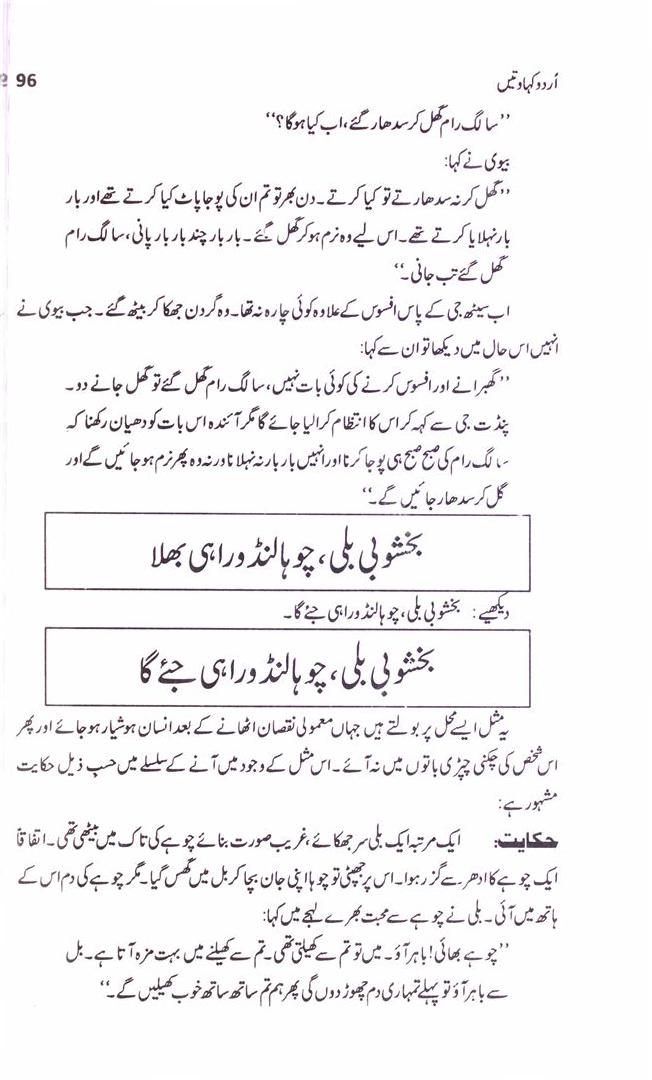 اُردو کہاوتیں 96
’’سالگ رام گھل کر سدھار گئے، اب کیا ہوگا؟‘‘
بیوی نے کہا:
’’گھل کر نہ سدھارتے تو کیا کرتے۔ دن بھر تو تم ان کی پوجا پاٹ کیا کرتے تھے اور بار
بار نہلایا کرتے تھے۔ اس لیے وہ نرم ہو کر گھل گئے۔ بار بار چند بار بار پانی، سالگ رام
گھل گئے تب جانی۔‘‘
اب سیٹھ جی کے پاس افسوس کے علاوہ کوئی چارہ نہ تھا۔ وہ گردن جھکا کر بیٹھ گئے۔ جب بیوی نے
انہیں اس حال میں دیکھا تو ان سے کہا:
’’گھبرانے اور افسوس کرنے کی کوئی بات نہیں، سالگ رام گھل گئے تو گھل جانے دو۔
پنڈت جی سے کہہ کر اس کا انتظام کرالیا جائے گا مگر آئندہ اس بات کو دھیان رکھنا کہ
سالگ رام کی صبح صبح ہی پوجا کرنا اور انہیں بار بار نہ نہلانا ورنہ وہ پھر نرم ہو جائیں گے اور
گل کر سدھار جائیں گے۔‘‘
بخشو بی بلی، چوہا لنڈورا ہی بھلا
دیکھیے: بخشو بی بلی، چوہا لنڈورا ہی جئے گا۔
بخشو بی بلی، چوہا لنڈورا ہی جئے گا
یہ مثل ایسے محل پر بولتے ہیں جہاں معمولی نقصان اٹھانے کے بعد انسان ہوشیار ہو جائے اور پھر
اس شخص کی چکنی چپڑی باتوں میں نہ آئے۔ اس مثل کے وجود میں آنے کے سلسلے میں حسب ذیل حکایت
مشہور ہے:
حکایت: ایک مرتبہ ایک بلی سر جھکائے، غریب صورت بنائے چوہے کی تاک میں بیٹھی تھی۔ اتفاقاً
ایک چوہے کا ادھر سے گزر ہوا۔ اس پر جھپٹی تو چوہا اپنی جان بچا کر بل میں گھس گیا۔ مگر چوہے کی دم اس کے
ہاتھ میں آئی۔ بلی نے چوہے سے محبت بھرے لہجے میں کہا:
’’چوہے بھائی! باہر آؤ۔ میں تو تم سے کھیلتی تھی۔ تم سے کھیلنے میں بہت مزہ آتا ہے۔ بل
سے باہر آؤ تو پہلے تمہاری دم چھوڑ دوں گی پھر ہم تم ساتھ ساتھ خوب کھیلیں گے۔‘‘